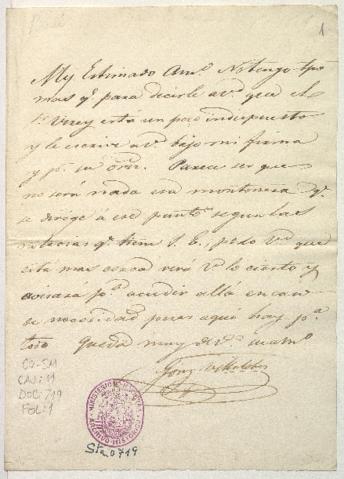 1
My Estimado Amo. No tengo tpo
mas qe. para decirle a vd. que el
Sr. Virey esta un poco indispuesto
y le escrive a vd. bajo mi firma
y pr. su orn. Parece ser que
no será nada esa montonera qe.
se dirige a ese punto segun las
noticias qe. tiene S. E., pero vd. que
esta mas cerca verá lo cierto y
avisará pa. acudir allá en caso
de necesidad pues aqui hay pa.
todo Queda muy de vd. su amo.
CO-SM
CAJ: 11
DOC: 719
FOL: 1
ARCHIVO HISTORICO
STa 0719